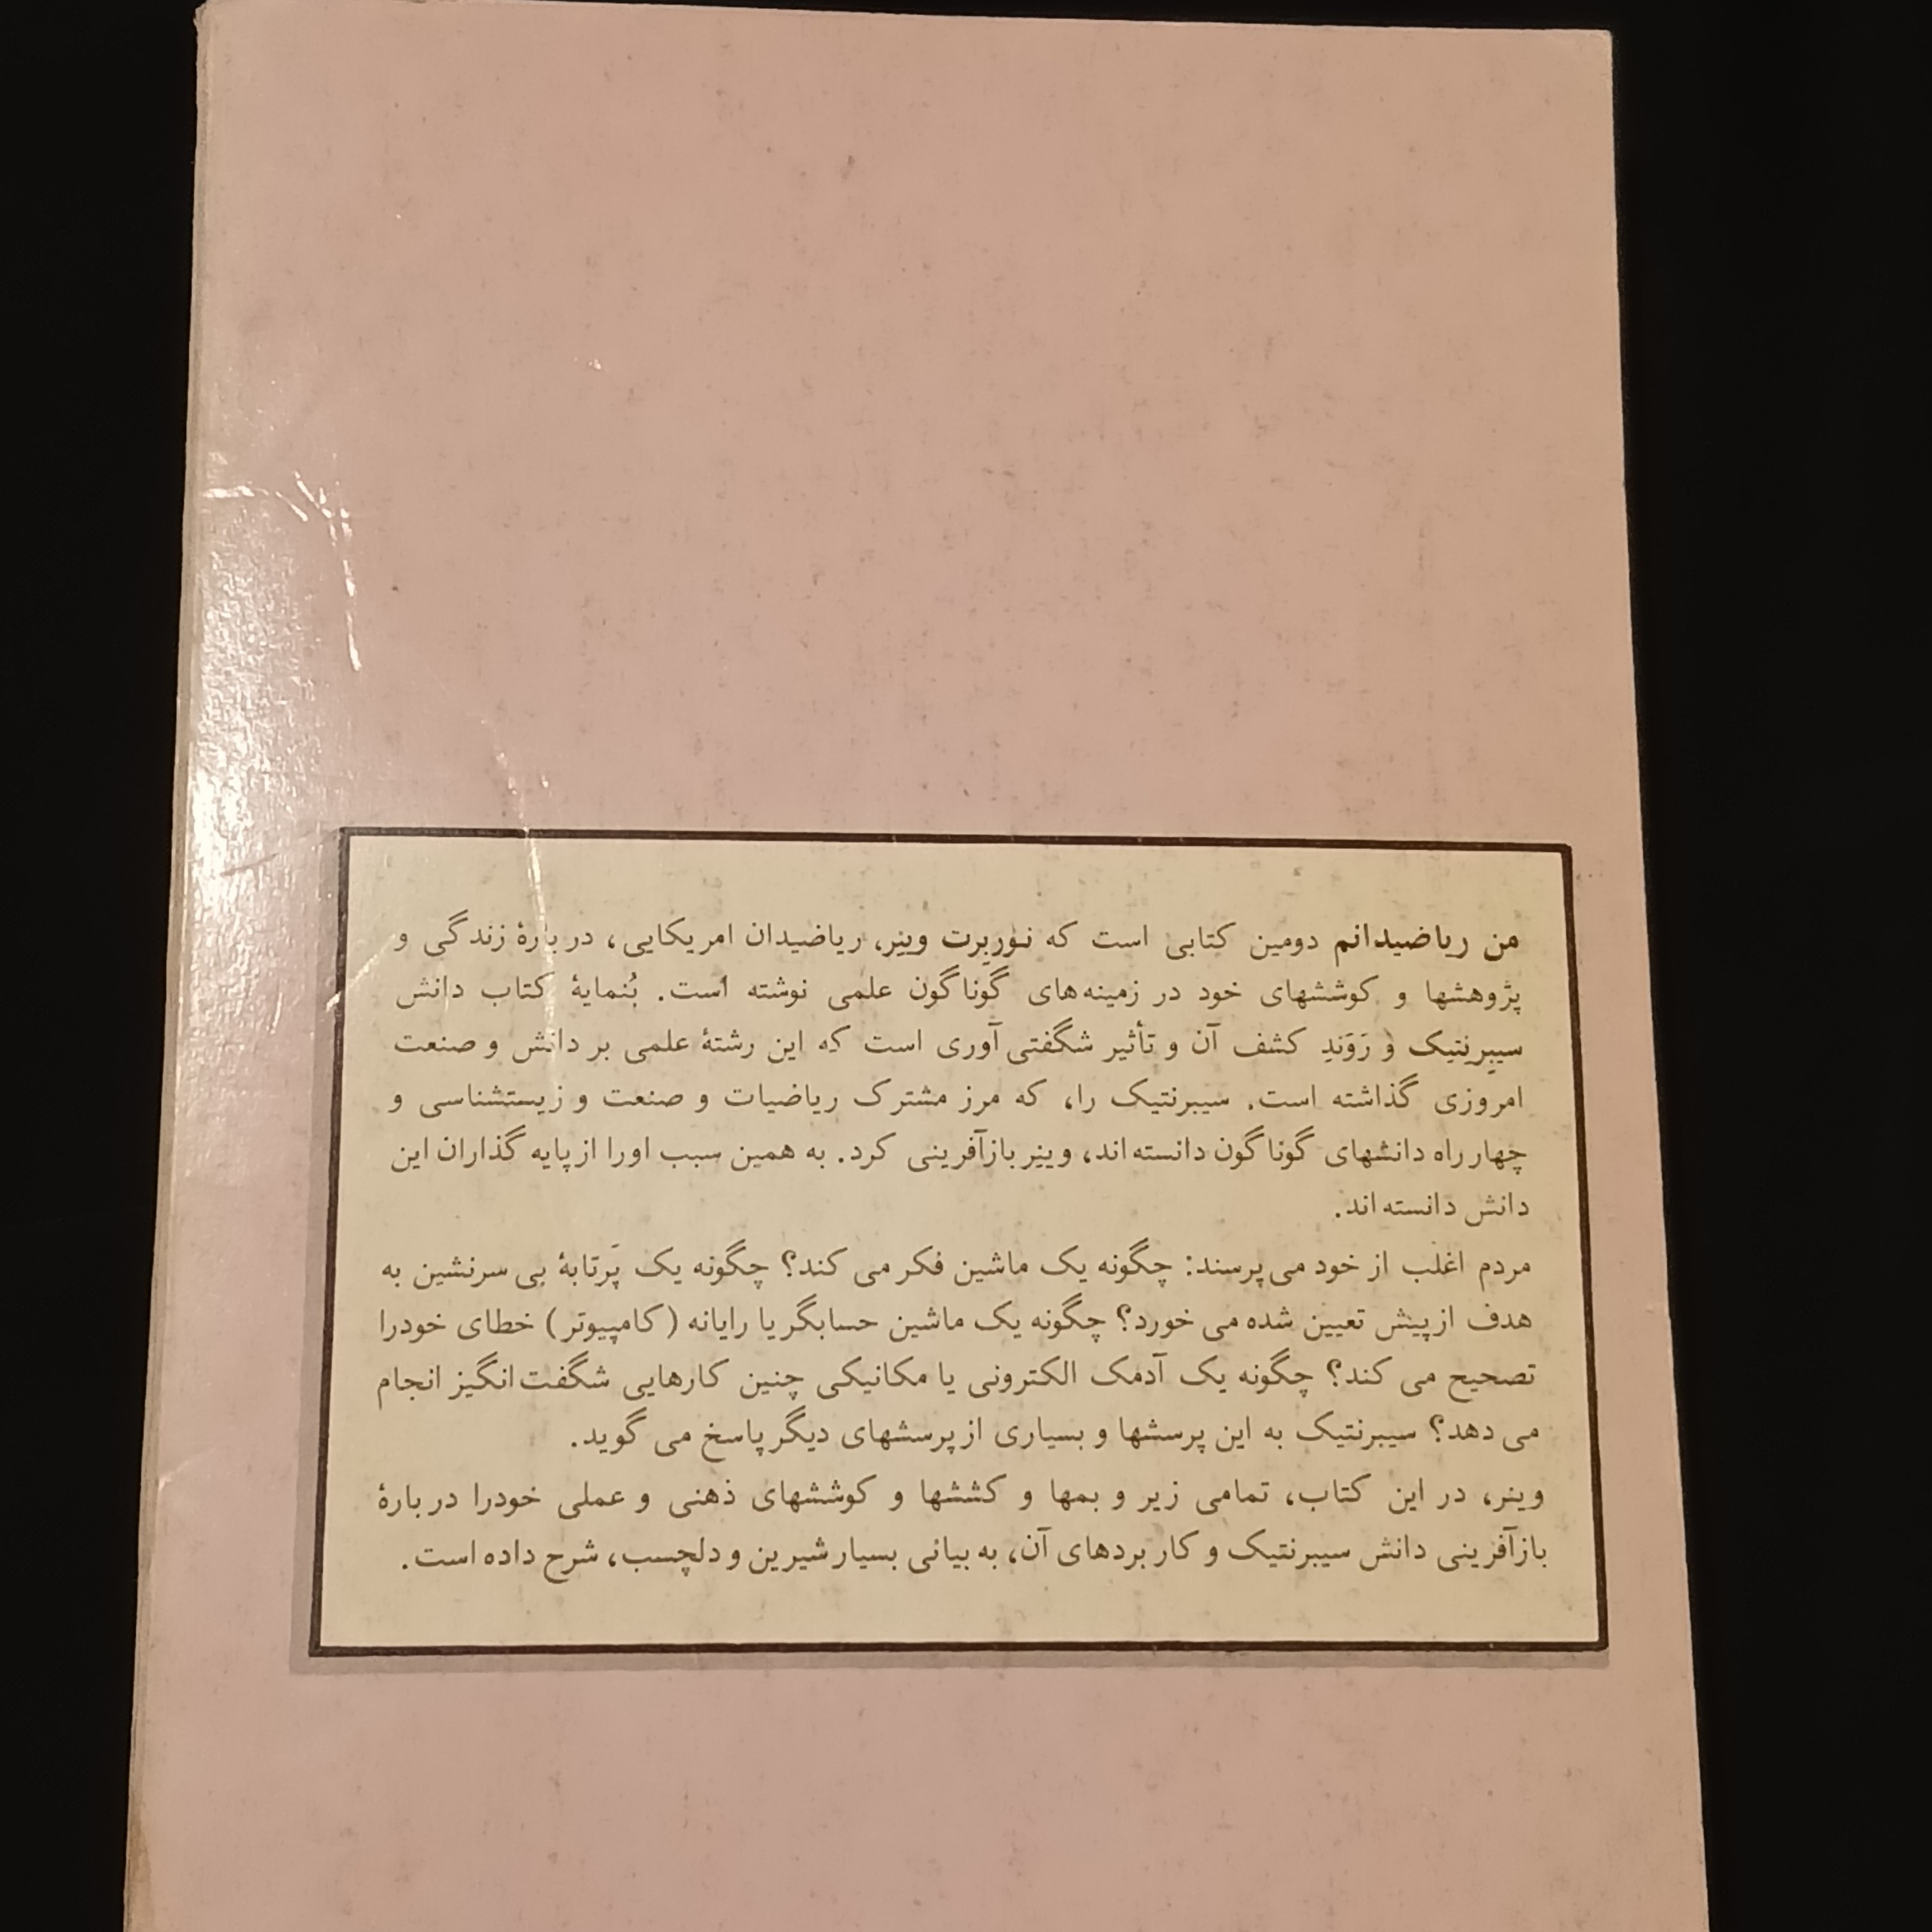 من ریاضیدانم دومین کتابی است که نوربرت وینر، ریاضیدان امریکایی، دربارهٔ زندگی و
پژوهشها و کوششهای خود در زمینه‌های گوناگون علمی نوشته است. بُنمایهٔ کتاب دانش
سیبرنتیک و رَوَندِ کشف آن و تأثیر شگفتی‌آوری است که این رشتهٔ علمی بر دانش و صنعت
امروزی گذاشته است. سیبرنتیک را، که مرز مشترک ریاضیات و صنعت و زیستشناسی و
چهارراه دانشهای گوناگون دانسته‌اند، وینر بازآفرینی کرد. به همین سبب اورا از پایه‌گذاران این
دانش دانسته‌اند.
مردم اغلب از خود می‌پرسند: چگونه یک ماشین فکر می‌کند؟ چگونه یک پَرتابهٔ بی‌سرنشین به
هدف از پیش تعیین شده می‌خورد؟ چگونه یک ماشین حسابگر یا رایانه (کامپیوتر) خطای خودرا
تصحیح می‌کند؟ چگونه یک آدمک الکترونی یا مکانیکی چنین کارهایی شگفت‌انگیز انجام
می‌دهد؟ سیبرنتیک به این پرسشها و بسیاری از پرسشهای دیگر پاسخ می‌گوید.
وینر، در این کتاب، تمامی زیر و بمها و کششها و کوششهای ذهنی و عملی خودرا دربارهٔ
بازآفرینی دانش سیبرنتیک و کاربردهای آن، به بیانی بسیار شیرین و دلچسب، شرح داده است.